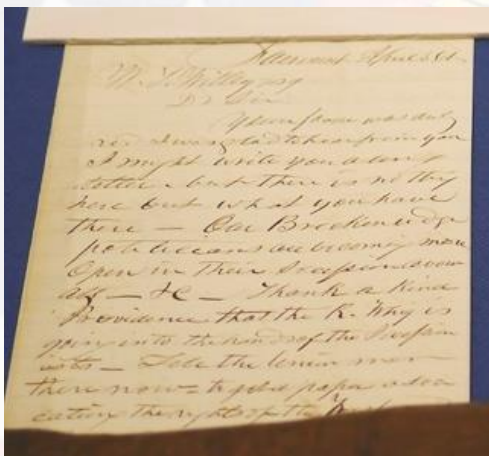 Fairmont April
W. T. Willey esq
Dr Sir
Your favor was duly
recd I was glad to hear from you
I might write you a long
letter - but there is nothing
here but what you have
there — Our Breckenridge
politicians are becoming more
open in their Secession avow
als — &c — Thank a kind
Providence that the R. Way is
going into the hands of the Secession
ists — Let the Union men
there now get a paper advo
cating the rights of the